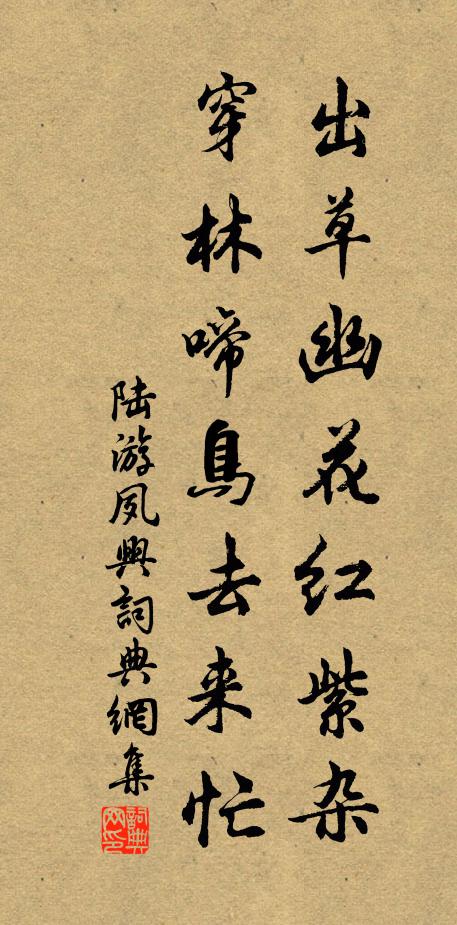 出草幽花红紫杂
穿林啼鳥去来忙
陆游夙興詞典網集
詞典网印